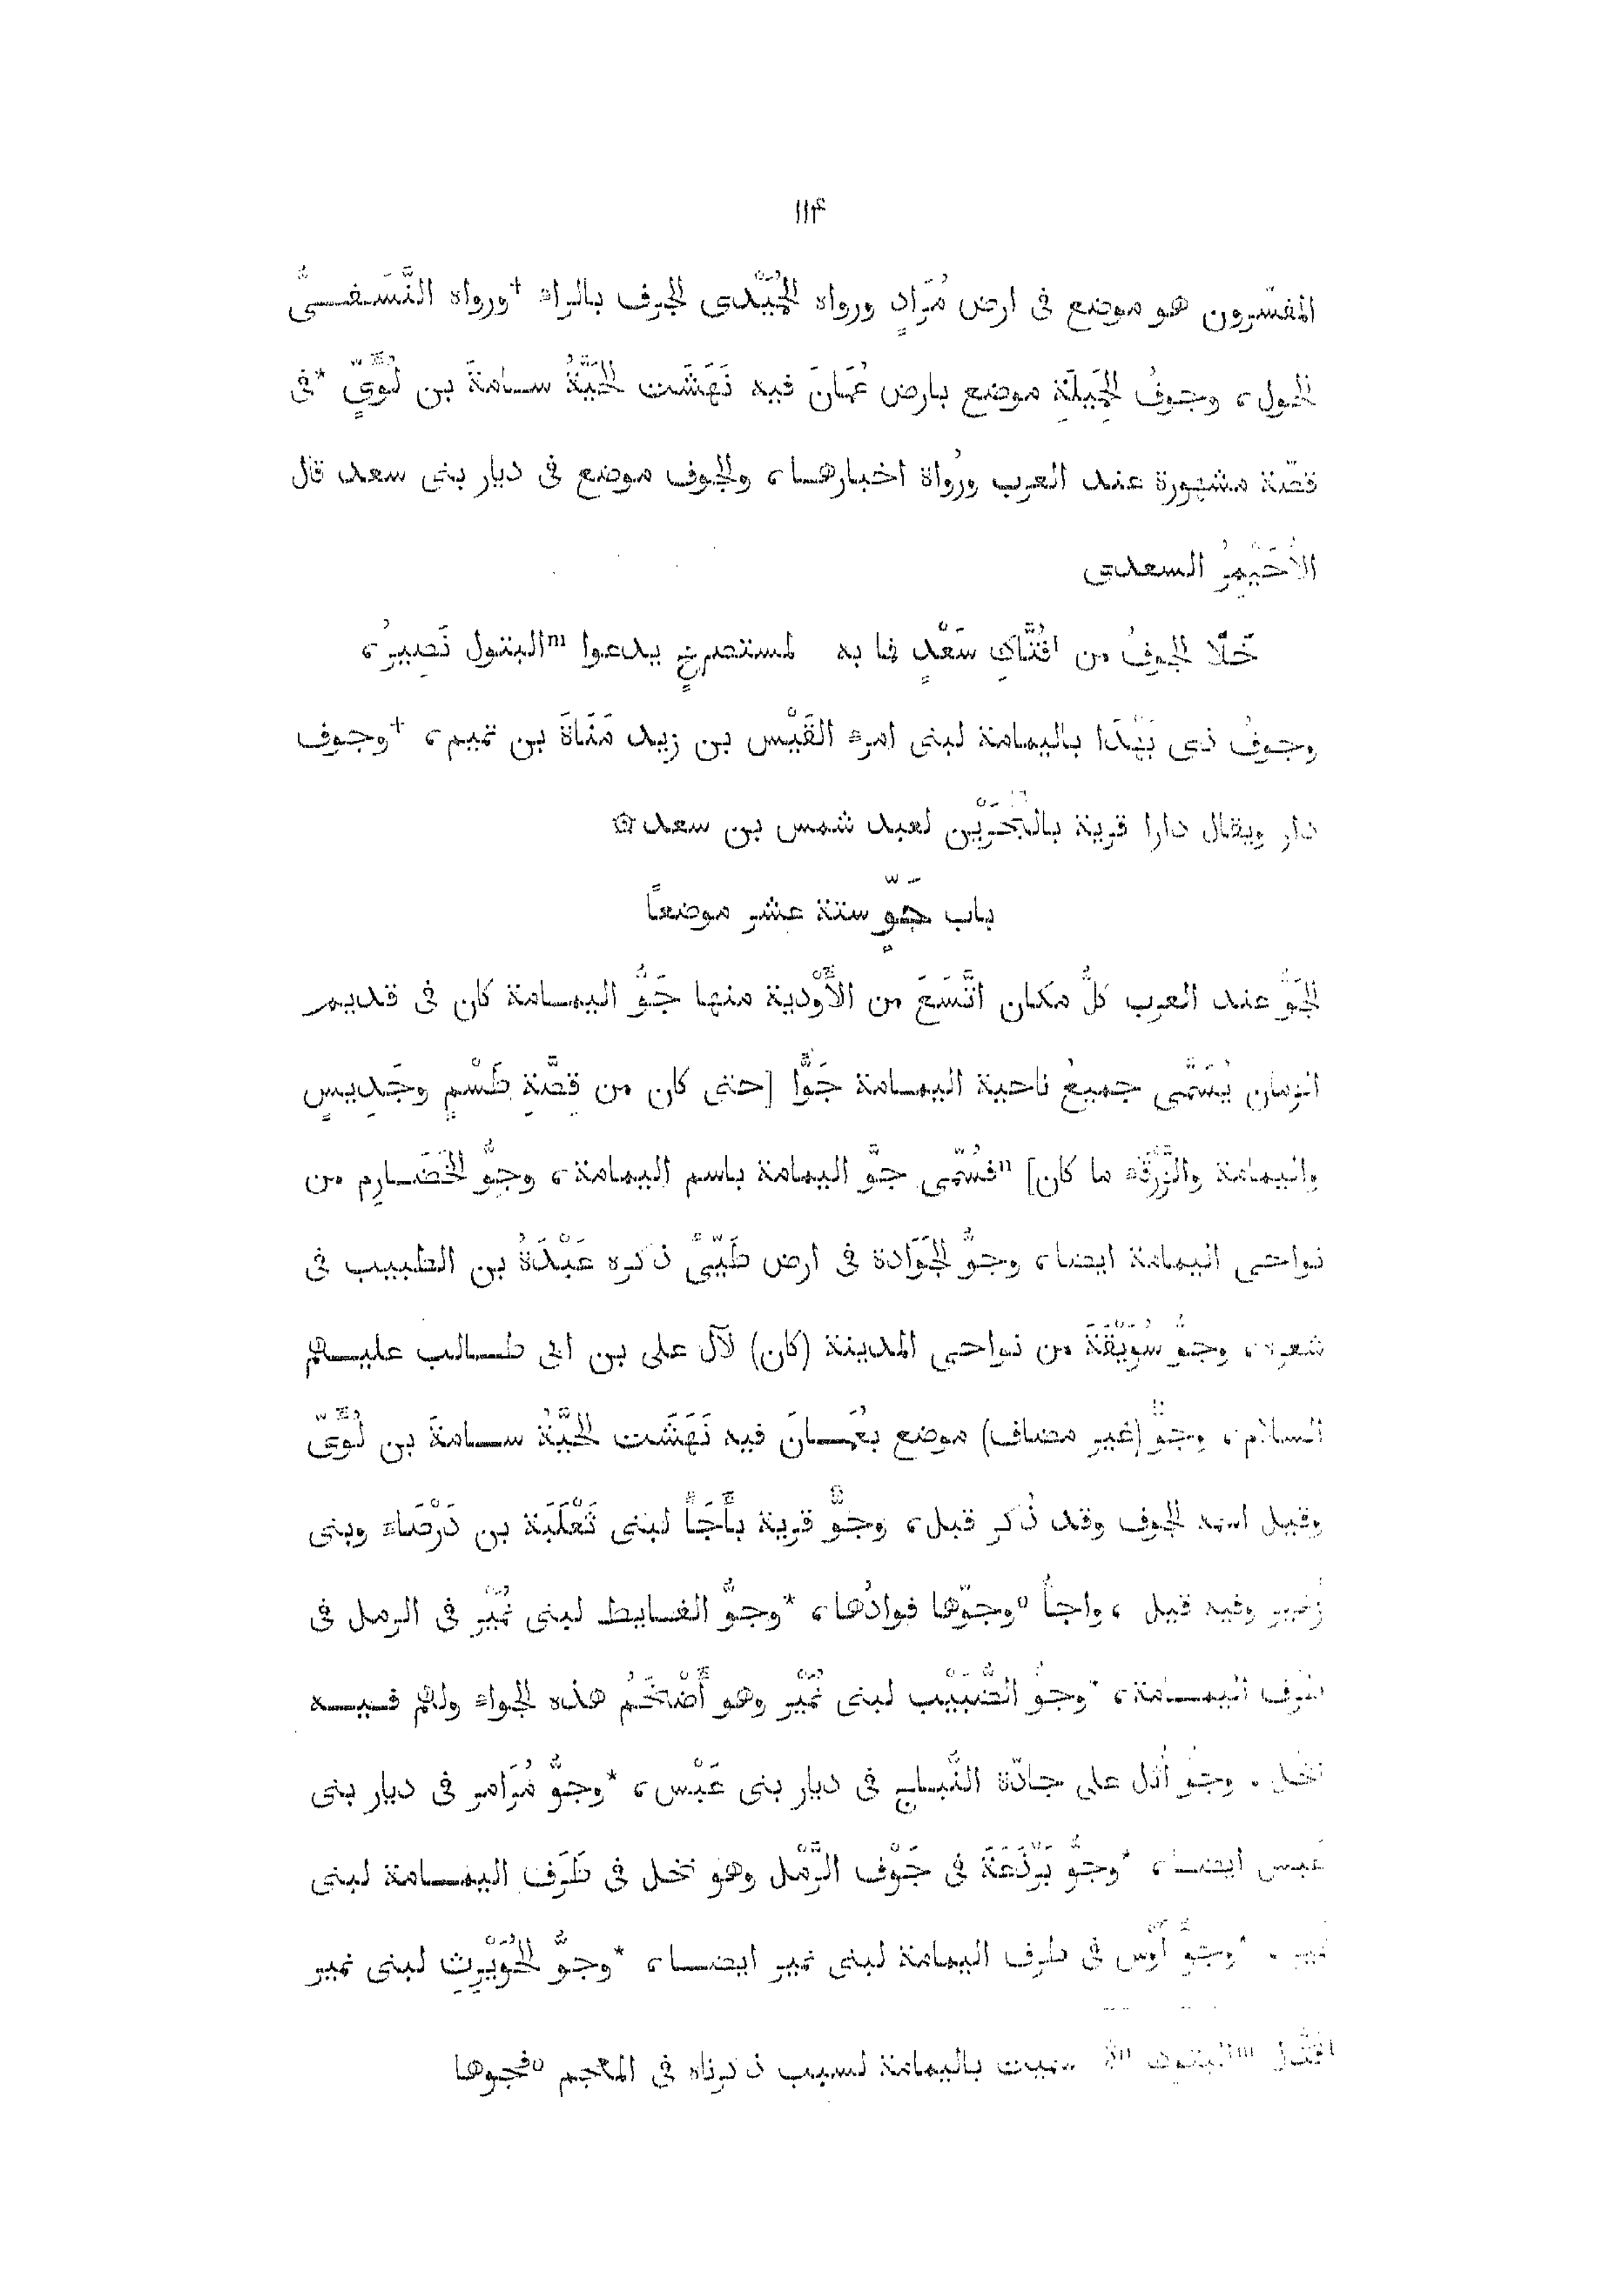 ١١٤
المفسّرون هو موضع فى ارض مُرَادٍ ورواه الحُمَيْدى الجرف بالراء †ورواه النَّسَفىُّ
الحول، وجوفُ الخَمِيلَةِ موضع بارض عُمَانَ فيه نَهَشَت الحَيَّةُ سامةَ بن لُؤَىٍّ *فى
قصّة مشهورة عند العرب ورُواة اخبارها، والجوف موضع فى ديار بنى سعد قال
الأُحَيْمِرُ السعدى
خَلَا الجوفُ من فُتَّاكِ سَعْدٍ فما به لمستصرخٍ يدعوا mالبتول نَصِيرُ،
وجوفُ ذى بَهْدَا باليمامة لبنى امرء القَيْس بن زيد مَنَاةَ بن تميم، †وجوف
دار ويقال دارا قرية بالبَحْرَيْن لعبد شمس بن سعد ۞
باب جَوٍّ ستة عشر موضعاً
الجَوُّ عند العرب كلُّ مكان اتَّسَعَ من الأَوْدية منها جَوُّ اليمامة كان فى قديم
الزمان يُسَمَّى جميعُ ناحية اليمامة جَوًّا [حتى كان من قِصَّةِ طَسْمٍ وجَدِيسٍ
واليمامة والزَّرْقاء ما كان] nفسُمّى جَوُّ اليمامة باسم اليمامة، وجوُّ الخَضَارِم من
نواحى اليمامة ايضا، وجوُّ الجَوَادة فى ارض طَيِّئٍ ذكره عَبْدَةُ بن الطبيب فى
شعره، وجوُّ سُوَيْقَةَ من نواحى المدينة (كان) لآل على بن ابى طالب عليهم
السلام، وجَوٌّ (غير مضاف) موضع بعُمَانَ فيه نَهَشَت الحَيَّةُ سامةَ بن لُؤَىّ
وقيل اسمه الجوف وقد ذُكر قبل، وجَوٌّ قرية بأَجَأٍ لبنى ثَعْلَبَة بن دَرْمَاء وبنى
زُهير وفيه قيل ، واجأٌ oوجوّها فوادُها، *وجوُّ الغايط لبنى نُمَيْر فى الرمل فى
طرف اليمامة، *وجوُّ الضُّبَيْب لبنى نُمَيْر وهو أَضْخَمُ هذه الجواء ولهم فيه
نخل، وجوُّ أُثال على جادّة النِّباج فى ديار بنى عَبْس، *وجوُّ مُرَامر فى ديار بنى
عبس ايضا، *وجوُّ بَرْذَعَةَ فى جَوْف الرَّمْل وهو نخل فى طَرَف اليمامة لبنى
نمير ، *وجوُّ أَوْس فى طرف اليمامة لبنى نمير ايضا، *وجوُّ الخُوَيْرِث لبنى نمير
mالبتول n سميت باليمامة لسبب ذكرناه فى المعجم oفجوها